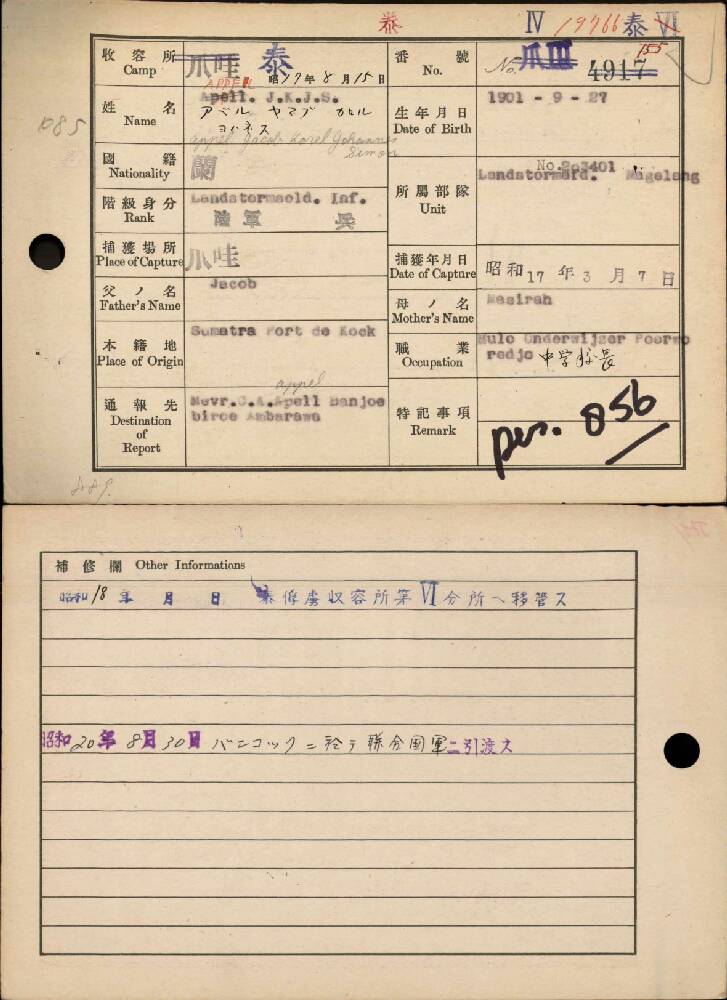 泰 IV 19766 泰 VI
收容所 Camp 爪哇 泰 昭17年8月15日
番號 No. No. 爪III 4917 155
085
姓名 Name APPEL
Apell. J.K.J.S.
アペル ヤコブ カレル
ヨハネス
Appel Jacob Karel Johannes
Simon
生年月日 Date of Birth 1901 - 9 - 27
國籍 Nationality 蘭
所屬部隊 Unit
Landstormafd. Magelang
階級身分 Rank Landstormsold. Inf.
陸軍 兵
捕獲場所 Place of Capture 爪哇
捕獲年月日 Date of Capture 昭和17年3月7日
父ノ名 Father's Name Jacob
母ノ名 Mother's Name Masirah
本籍地 Place of Origin Sumatra Fort de Kock
職業 Occupation Mulo Onderwijzer Poerwo
redjo 中学校長
通報先 Destination of Report appel
Mevr.C.A.Apell Banjoe
biroe Ambarawa
特記事項 Remark per. 056
補修欄 Other Informations
昭和18年 月 日 泰俘虜収容所第VI分所ヘ移管ス
昭和20年8月30日 バンコックニ於テ聯合国軍ニ引渡ス